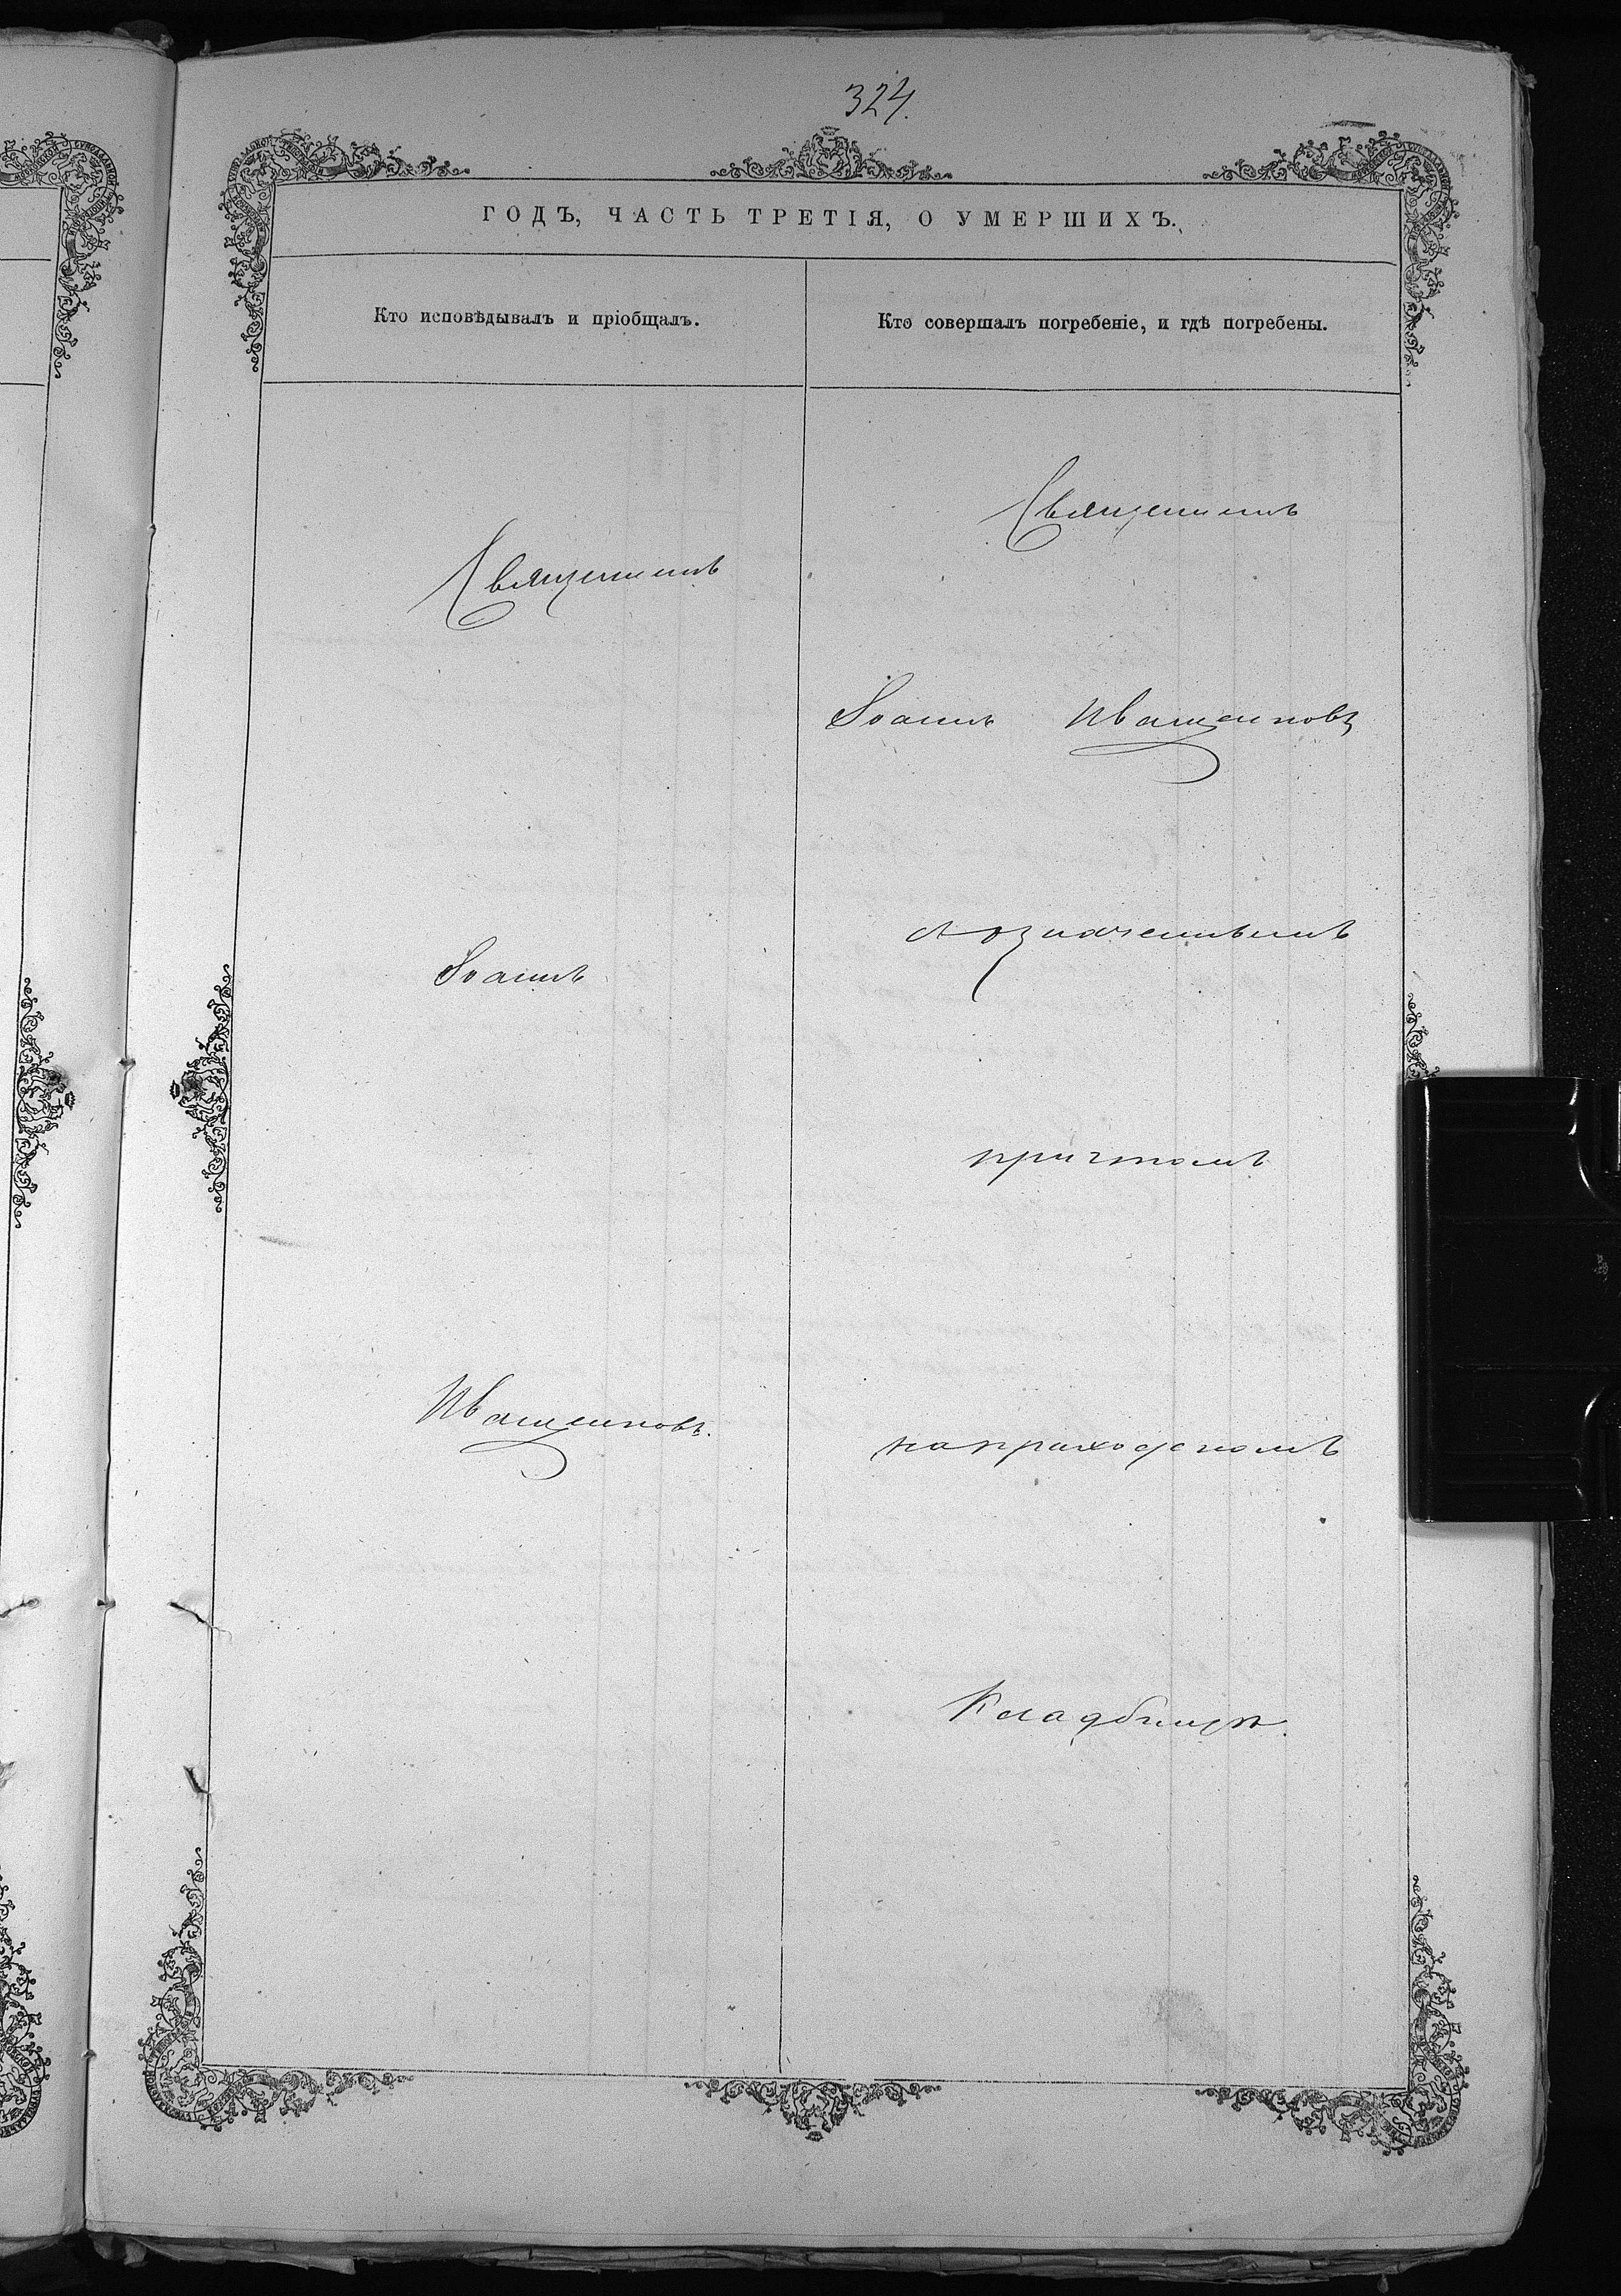 324.
ГОДЪ, ЧАСТЬ ТРЕТІЯ, О УМЕРШИХЪ.
Кто исповѣдывалъ и пріобщалъ.
Священникъ
Іоаннъ
Иващенковъ.
Кто совершалъ погребеніе, и гдѣ погребены.
Священникъ
Іоаннъ Иващенковъ
съ означеннымъ
причтомъ
на приходскомъ
Кладбищѣ.